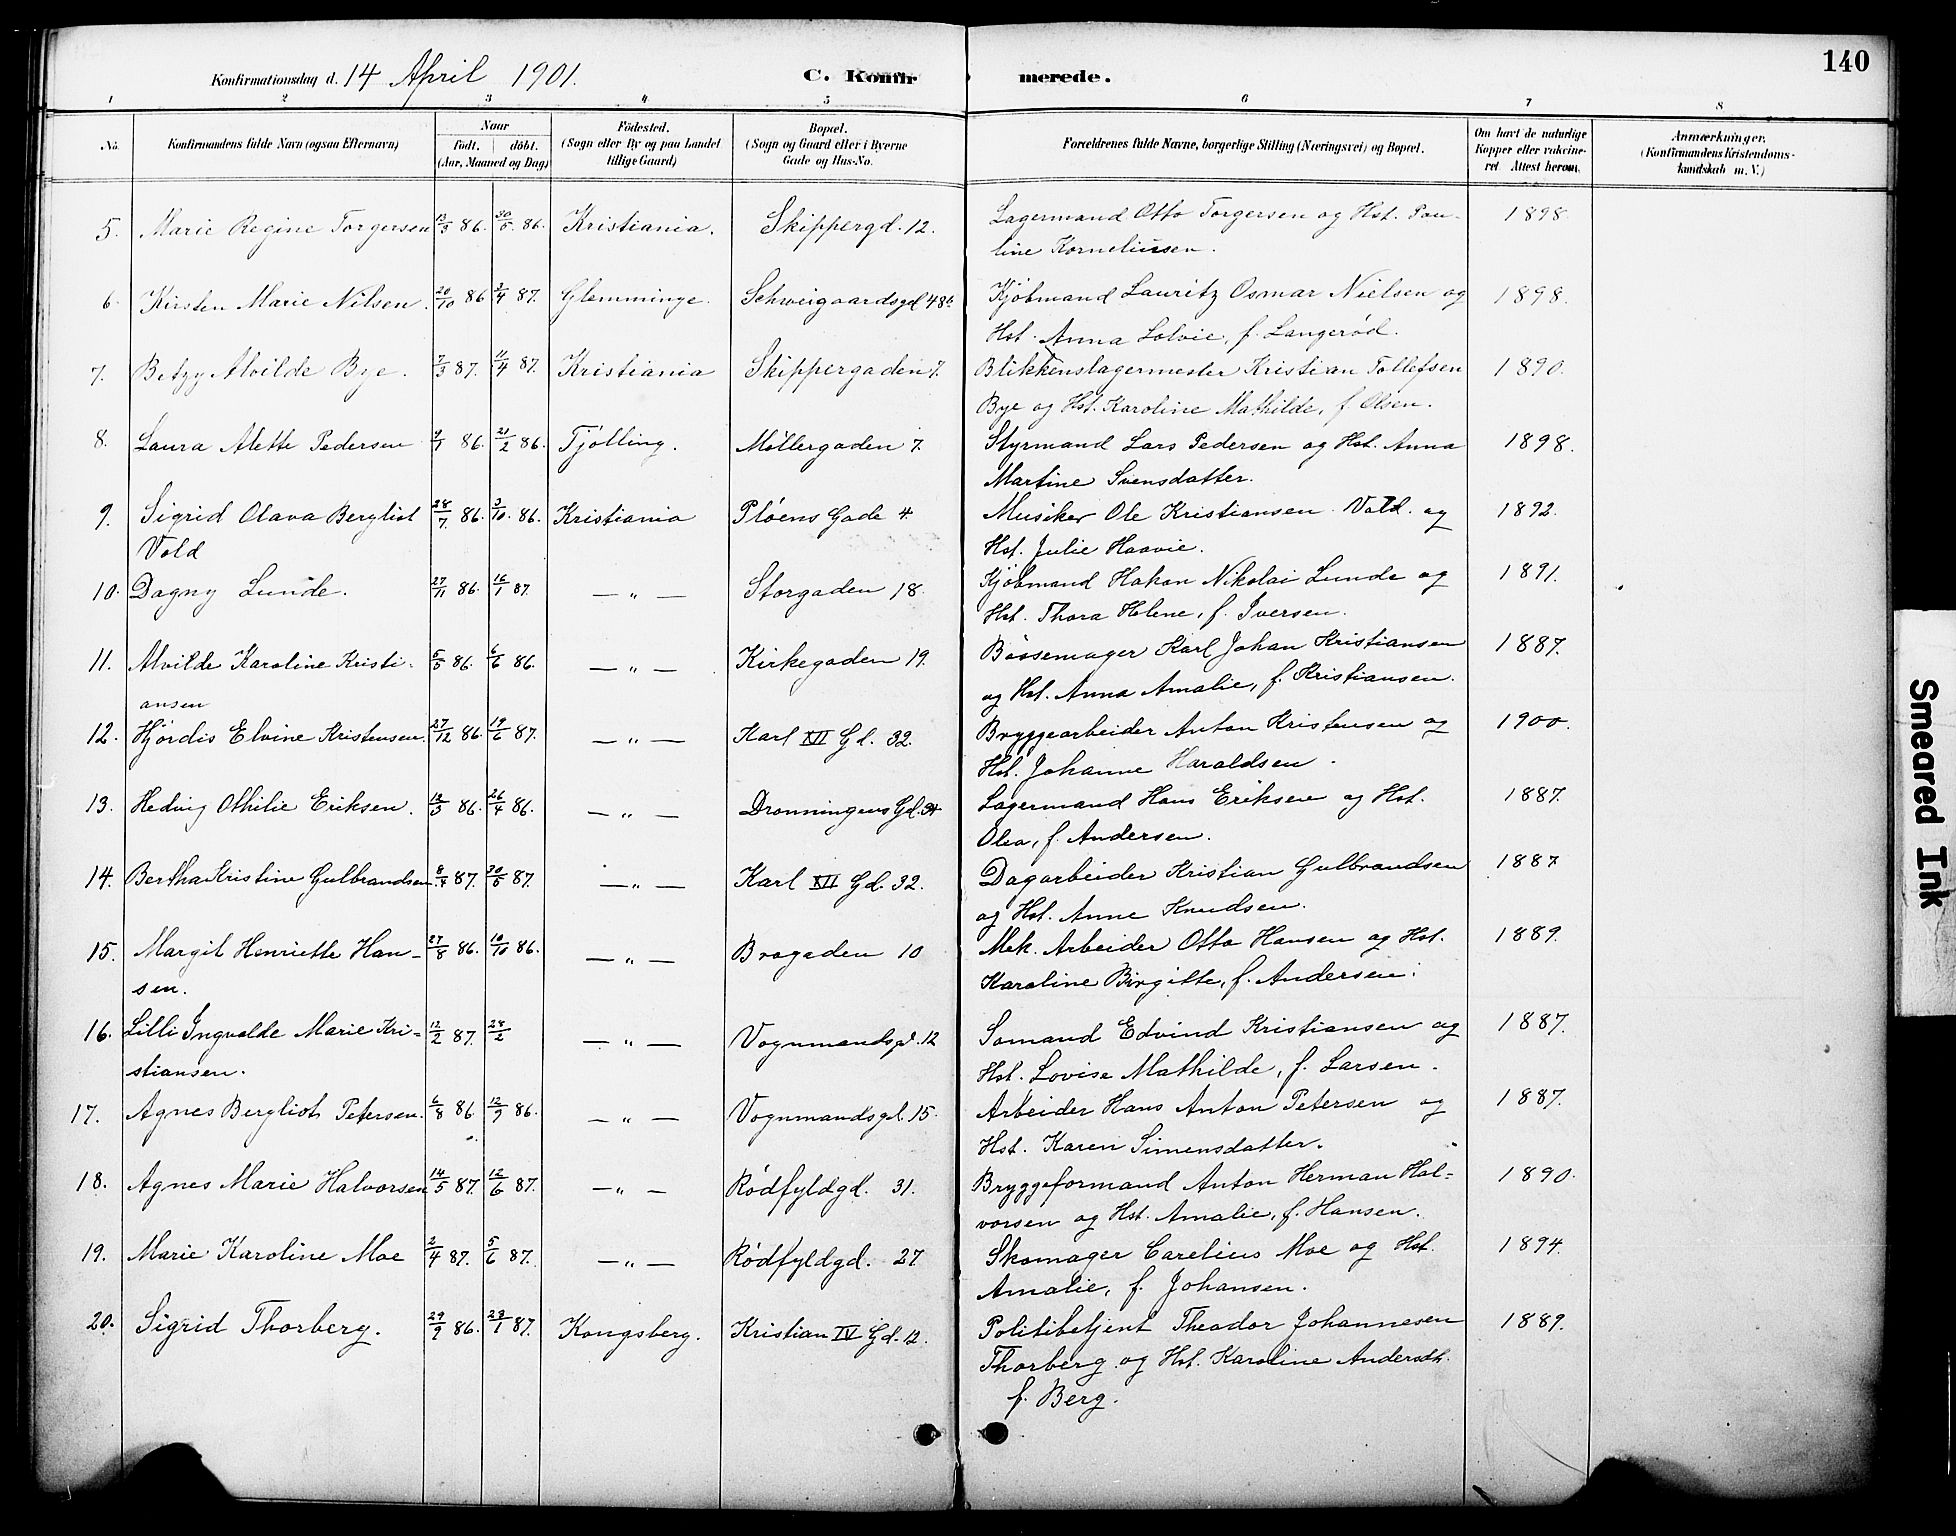 140
Konfirmationsdag d. 14 April 1901.
C. Konfir merede.
1 2 3 4 5 6 7 8
No. Konfirmandens fulde Navn (ogsaa Efternavn) Naar födt. döbt. (Aar, Maaned og Dag) Födested. (Sogn eller By og paa Landet tillige Gaard) Bopæl. (Sogn og Gaard eller i Byerne Gade og Hus-No. Forældrenes fulde Navne, borgerlige Stilling (Næringsvei) og Bopæl. Om havt de naturlige Kopper eller vakcineret Attest herom. Anmærkninger. (Konfirmandens Kristendomskundskab m. V.)
5. Marie Regine Torgersen 13/3 86. 30/5 86. Kristiania. Skippergd. 12. Lagermand Otto Torgersen og Hst. Pau- 1898.
line Korneliussen.
6. Kirsten Marie Nilsen. 20/10 86 3/4 87. Glemminge. Schweigaardsgd 48b. Kjöbmand Lauritz Osmar Nielsen og 1898.
Hst. Anna Lovie, f. Langeröd.
7. Betzy Alvilde Bye. 7/3 87. 11/4 87. Kristiania Skippergaden 7. Blikkenslagermester Kristian Tollefsen 1890.
Bye og Hst. Karoline Mathilde, f. Olsen.
8. Laura Alette Pedersen 9/1 86. 21/2 86. Tjölling. Möllergaden 7. Styrmand Lars Pedersen og Hst. Anna 1898.
Martine Svensdatter.
9. Sigrid Olava Bergliot 28/7 86. 3/10. 86. Kristiania Plöens Gade 4. Musiker Ole Kristiansen Vold. og 1892.
Vold Hst. Julie Haavie.
10. Dagny Lunde. 27/11 86. 16/1 87. — " — Storgaden 18. Kjöbmand Hakon Nikolai Lunde og 1891.
Hst. Thora Helene, f. Iversen.
11. Alvilde Karoline Kristi- 5/5 86. 6/6 86. — " — Kirkegaden 19. Bössemager Karl Johan Kristiansen 1887.
ansen og Hst. Anna Amalie, f. Kristiansen.
12. Hjördis Elvine Kristensen. 27/12 86. 19/6 87. — " — Karl XII Gd. 32. Bryggearbeider Anton Kristensen og 1900.
Hst. Johanne Haraldsen.
13. Hedvig Othilie Eriksen. 13/3 86. 26/4 86. — " — Dronningens Gd. 34 Lagermand Hans Eriksen og Hst. 1887.
Olea, f. Andersen.
14. Bertha Kristine Gulbrandsen 8/4 87. 30/5 87. — " — Karl XII Gd. 32. Dagarbeider Kristian Gulbrandsen 1887
og Hst. Anne Knudsen.
15. Margit Henriette Han- 27/8 86. 10/10 86. — " — Bragaden 10 Mek. Arbeider Otto Hansen og Hst. 1889.
sen. Karoline Birgitte, f. Andersen.
16. Lilli Ingvalde Marie Kri- 12/2 87. 28/2 — " — Vognmandsgd. 12 Sömand Edvind Kristiansen og 1887.
stiansen. Hst. Lovise Mathilde, f. Larsen.
17. Agnes Bergliot Petersen. 6/8 86. 12/9 86. — " — Vognmandsgd. 15. Arbeider Hans Anton Petersen og 1887.
Hst. Karen Simensdatter.
18. Agnes Marie Halvorsen 14/5 87. 12/6 87. — " — Rödfyldgd. 31. Bryggeformand Anton Herman Hal- 1890.
vorsen og Hst. Amalie, f. Hansen.
19. Marie Karoline Moe 2/4 87. 5/6 87. — " — Rödfyldgd. 27 Skomager Carelius Moe og Hst. 1894.
Amalie, f. Johansen.
20. Sigrid Thorberg. 29/9 86. 23/1 87. Kongsberg. Kristian IV Gd. 12. Politibetjent Theodor Johannesen 1889.
Thorberg og Hst. Karoline Andersdt.
f. Berg.
Smeared Ink